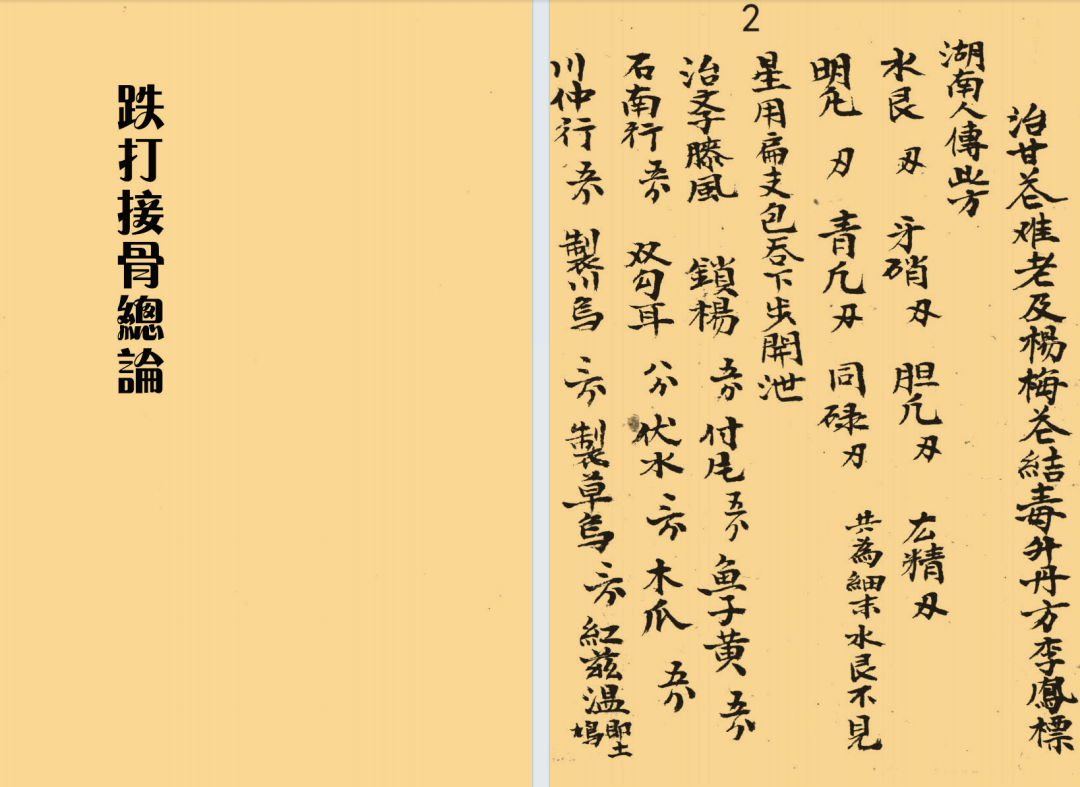 跌打接骨總論
2
治甘苍难老及楊梅苍結毒升丹方李鳳標
湖南人傳此方
水艮 刄 牙硝 刄 胆凡 刄 広精 刄
明凡 刄 青凡 刄 同碌 刄 共為細末水艮不見
星用扁支包吞下步開泄
治孝膝風 鎖楊 五分 付片 五分 魚子黄 五分
石南行 五分 双勾耳 八分 伏水 三分 木瓜 五分
川仲行 五分 製川烏 三分 製草烏 三分 紅兹温